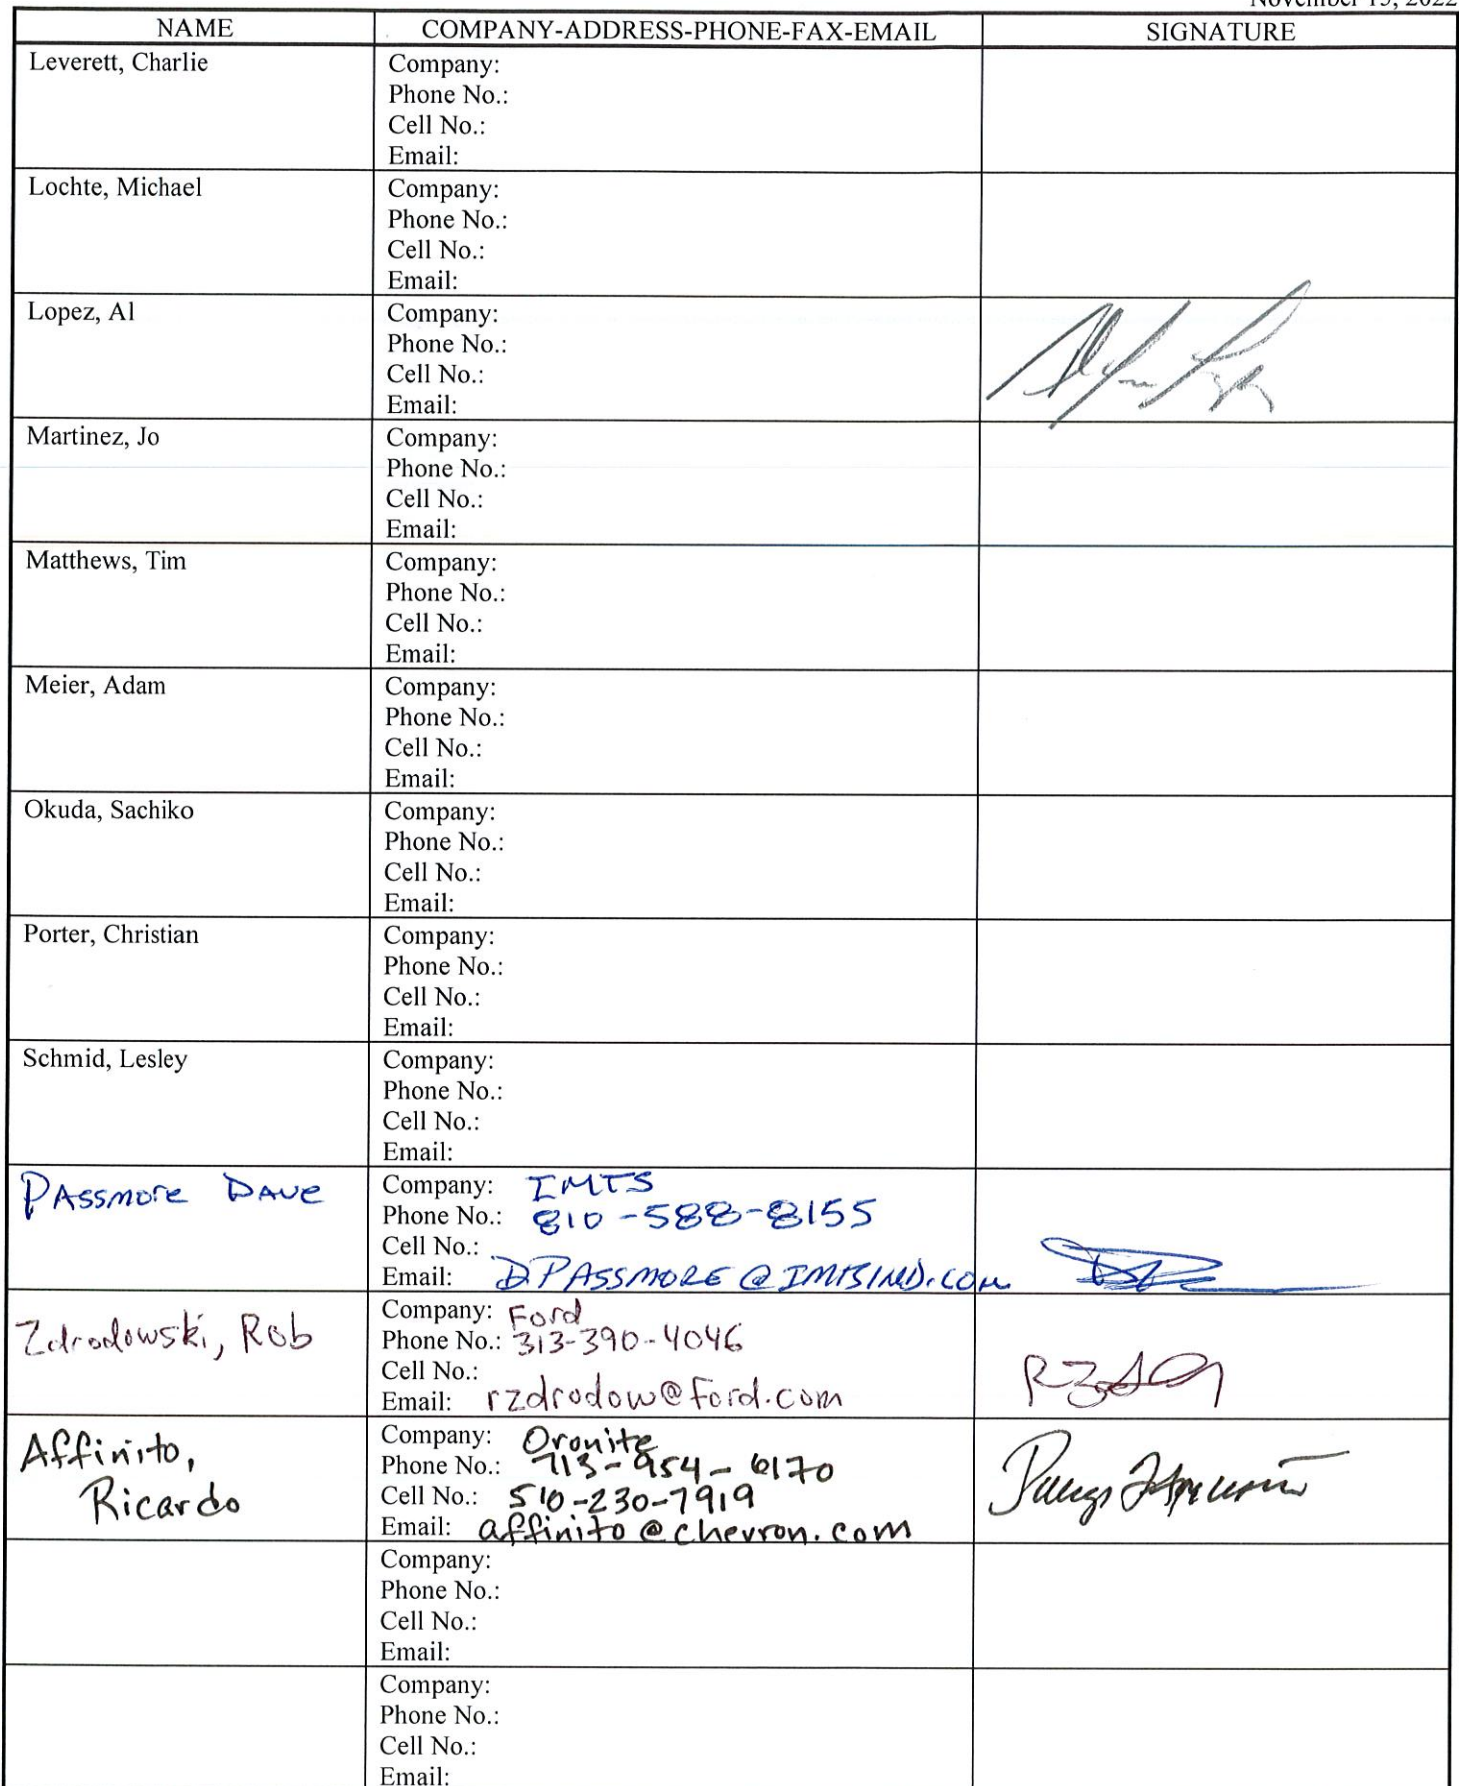 November 15, 2022
NAME COMPANY-ADDRESS-PHONE-FAX-EMAIL SIGNATURE
Leverett, Charlie
Company:
Phone No.:
Cell No.:
Email:
Lochte, Michael
Company:
Phone No.:
Cell No.:
Email:
Lopez, Al
Company:
Phone No.:
Cell No.:
Email:
Martinez, Jo
Company:
Phone No.:
Cell No.:
Email:
Matthews, Tim
Company:
Phone No.:
Cell No.:
Email:
Meier, Adam
Company:
Phone No.:
Cell No.:
Email:
Okuda, Sachiko
Company:
Phone No.:
Cell No.:
Email:
Porter, Christian
Company:
Phone No.:
Cell No.:
Email:
Schmid, Lesley
Company:
Phone No.:
Cell No.:
Email:
PAssmore DAve
Company: IMTS
Phone No.: 810-588-8155
Cell No.:
Email: DPASSMORE@IMTSIND.COM
Zdrodowski, Rob
Company: Ford
Phone No.: 313-390-4046
Cell No.:
Email: rzdrodow@ford.com
Affinito,
Ricardo
Company: Oronite
Phone No.: 713-954-6170
Cell No.: 510-230-7919
Email: affinito@chevron.com
Company:
Phone No.:
Cell No.:
Email:
Company:
Phone No.:
Cell No.:
Email: